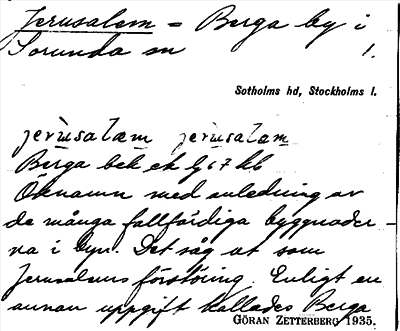 Jerusalem = Berga by i
Sorunda sn 1.
Sotholms hd, Stockholms l.
jerusalæm jerusalam
Berga bek ek G 67 kb
Öknamn med anledning av
de många fallfärdiga byggnader-
na i byn. Det såg ut som
Jerusalems förstöring. Enligt en
annan uppgift kallades Berga
GÖRAN ZETTERBERG 1935.